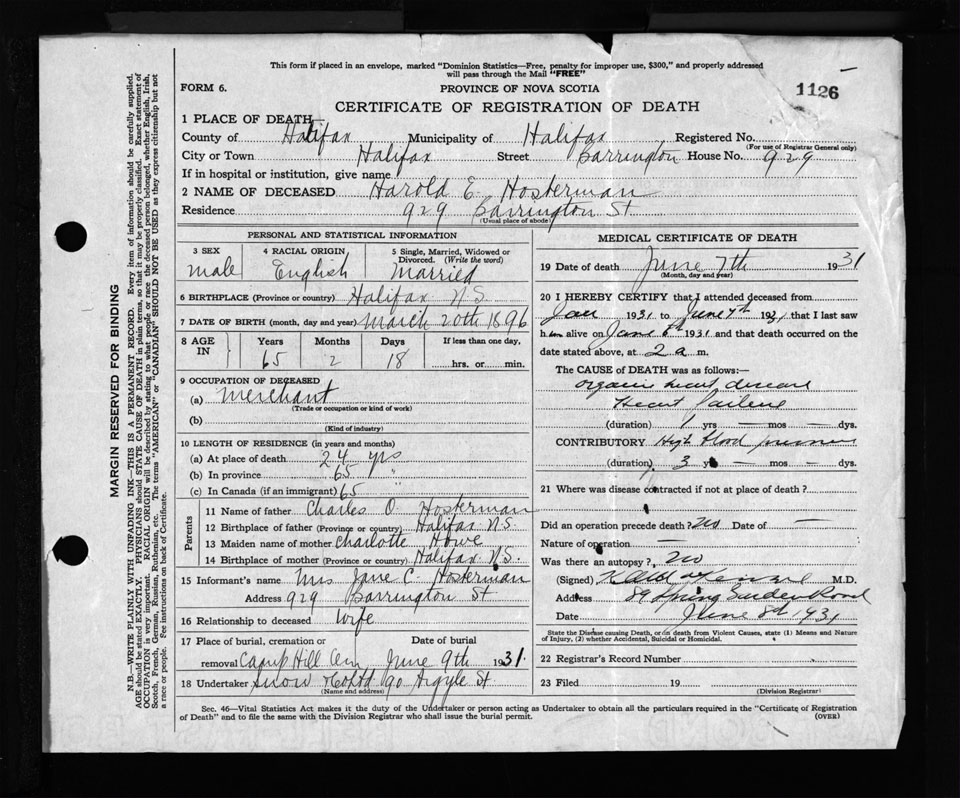 This form if placed in an envelope, marked "Dominion Statistics—Free, penalty for improper use, $300," and properly addressed
will pass through the Mail "FREE"
FORM 6.
PROVINCE OF NOVA SCOTIA
1126
CERTIFICATE OF REGISTRATION OF DEATH
1 PLACE OF DEATH
County of Halifax Municipality of Halifax Registered No.
(For use of Registrar General only)
City or Town Halifax Street Barrington House No. 929
If in hospital or institution, give name
2 NAME OF DECEASED Harold E. Hosterman
Residence 929 Barrington St
(Usual place of abode)
MARGIN RESERVED FOR BINDING
N.B.—WRITE PLAINLY WITH UNFADING INK—THIS IS A PERMANENT RECORD. Every item of information should be carefully supplied.
AGE should be stated EXACTLY. PHYSICIANS should STATE CAUSE OF DEATH in plain terms, so that it may be properly classified. Exact statement of
OCCUPATION is very important. RACIAL ORIGIN will be described by stating to what people or race the deceased person belonged, whether English, Irish,
Scotch, French, German, Russian, Ruthenian, etc. The terms "AMERICAN" or "CANADIAN" SHOULD NOT BE USED as they express citizenship but not
a race or people. See instructions on back of Certificate.
PERSONAL AND STATISTICAL INFORMATION
3 SEX
male
4 RACIAL ORIGIN
English
5 Single, Married, Widowed or
Divorced. (Write the word)
Married
6 BIRTHPLACE (Province or country) Halifax N.S.
7 DATE OF BIRTH (month, day and year) March 20th 1896
8 AGE
IN
Years Months Days If less than one day,
65 2 18 hrs. or min.
9 OCCUPATION OF DECEASED
(a) Merchant
(Trade or occupation or kind of work)
(b)
(Kind of industry)
10 LENGTH OF RESIDENCE (in years and months)
(a) At place of death 24 yrs
(b) In province 65 "
(c) In Canada (if an immigrant) 65 "
Parents
11 Name of father Charles O. Hosterman
12 Birthplace of father (Province or country) Halifax N.S.
13 Maiden name of mother Charlotte Howe
14 Birthplace of mother (Province or country) Halifax N.S.
15 Informant's name Mrs Jane C. Hosterman
Address 929 Barrington St
16 Relationship to deceased Wife
17 Place of burial, cremation or Date of burial
removal Camp Hill Cem June 9th 1931.
18 Undertaker Snow & Co Ltd 90 Argyle St
(Name and address)
MEDICAL CERTIFICATE OF DEATH
19 Date of death June 7th 1931
(Month, day and year)
20 I HEREBY CERTIFY that I attended deceased from
Jan 1931 to June 7th 1931 that I last saw
him alive on June 6th 1931 and that death occurred on the
date stated above, at 2 a m.
The CAUSE of DEATH was as follows:—
Organic heart disease
Heart failure
(duration) 1 yrs — mos — dys.
CONTRIBUTORY High blood pressure
(duration) 3 — mos — dys.
21 Where was disease contracted if not at place of death?
Did an operation precede death? No Date of —
Nature of operation —
Was there an autopsy? No
(Signed) M.D.
Address 89 Spring Garden Road
Date June 8th 1931
State the Disease causing Death, or in death from Violent Causes, state (1) Means and Nature
of Injury, (2) whether Accidental, Suicidal or Homicidal.
22 Registrar's Record Number
23 Filed 19
(Division Registrar)
Sec. 46—Vital Statistics Act makes it the duty of the Undertaker or person acting as Undertaker to obtain all the particulars required in the "Certificate of Registration
of Death" and to file the same with the Division Registrar who shall issue the burial permit.
(OVER)